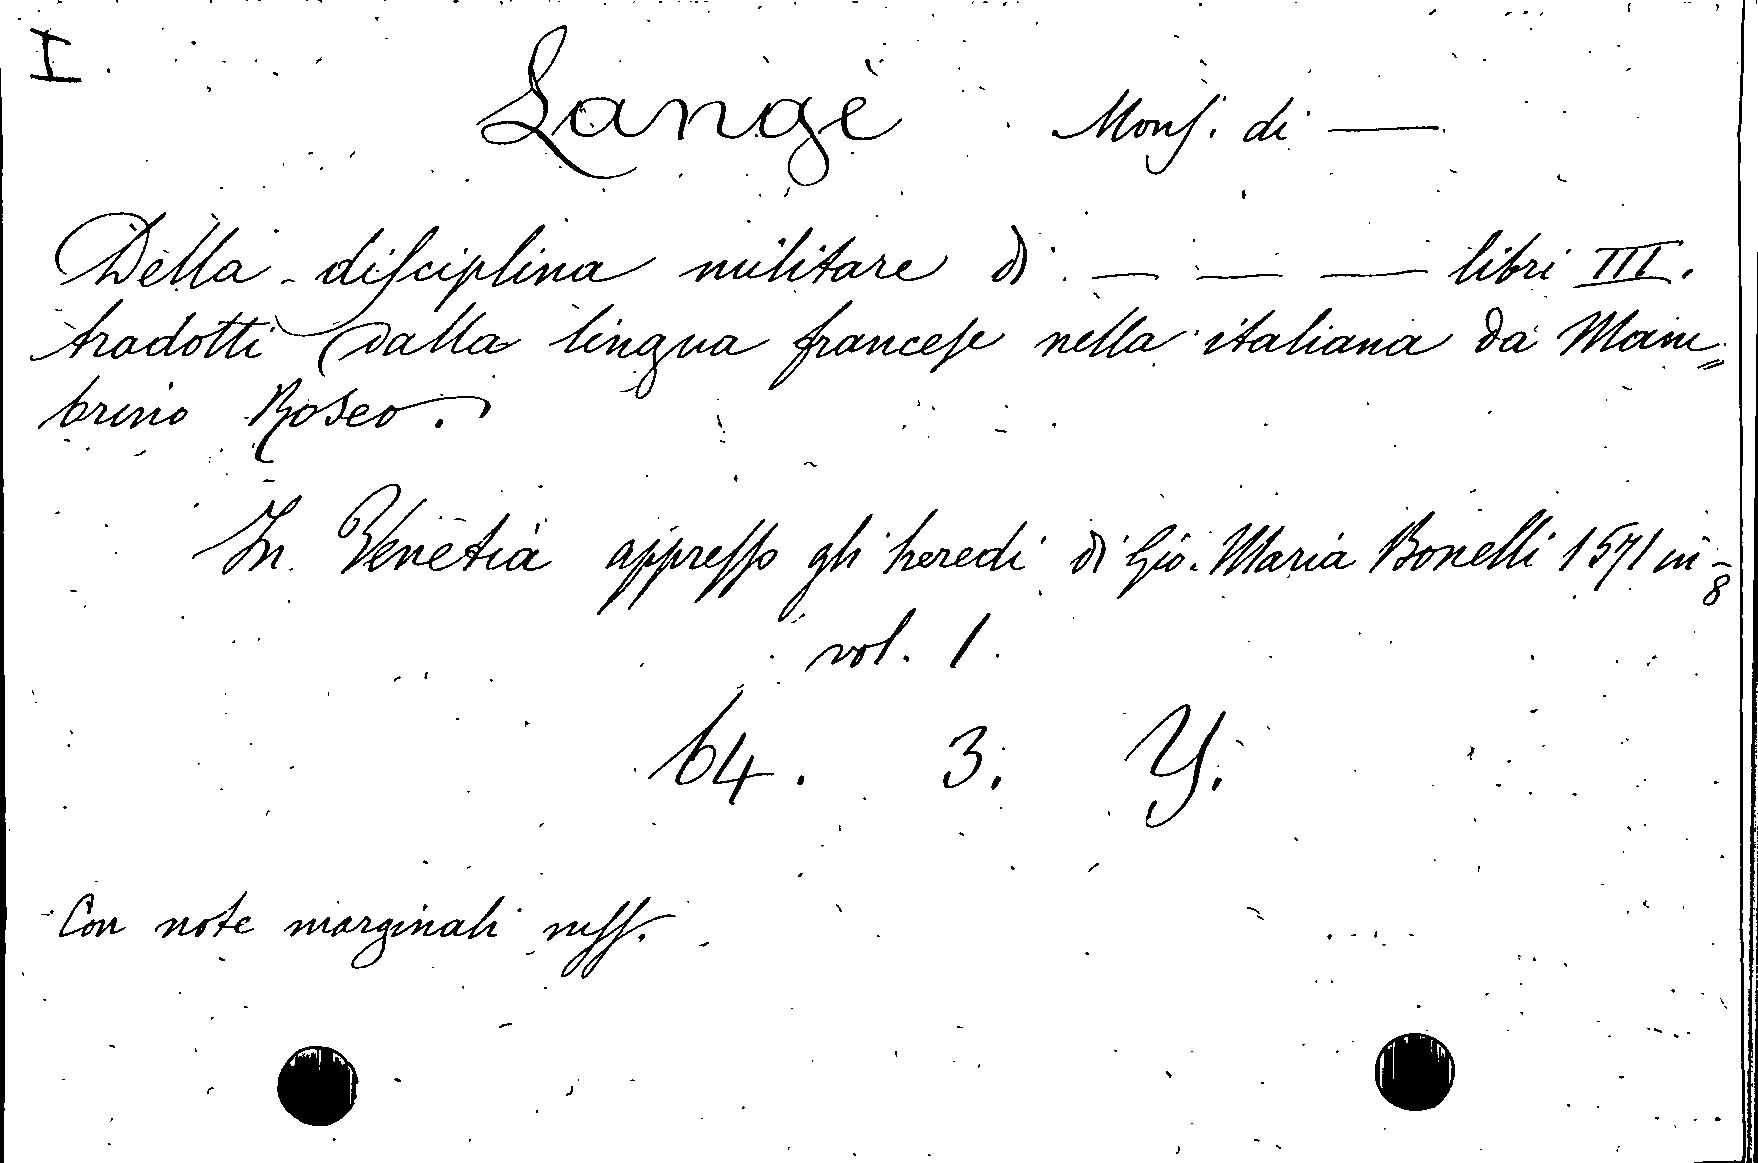 I.
Langè Monſ. di —
Della diſciplina militare di — — — libri III.
tradotti dalla lingua franceſe nella italiana da Mam=
brino Roseo.
In Venetia appreſſo gli heredi di Gio. Maria Bonelli 1571 in-8
vol. 1.
64. 3. Y.
Con note marginali mſſ.